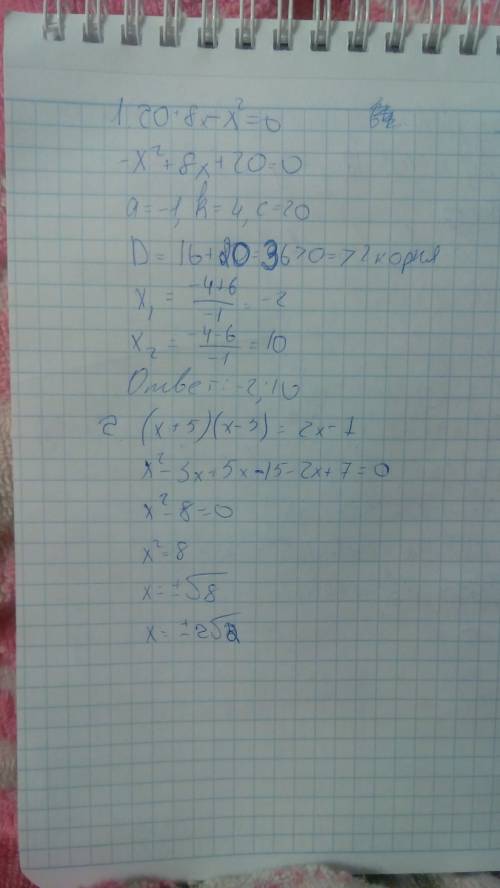 1. 20+8x-x²=0
-x²+8x+20=0
a=-1, k=4, c=20
D=16+20=36>0=>2 корня
x₁=(-4+6)/-1=-2
x₂=(-4-6)/-1=10
Ответ: -2; 10
2 (x+5)(x-3)=2x-7
x²-3x+5x-15-2x+7=0
x²-8=0
x²=8
x=±√8
x=±2√2